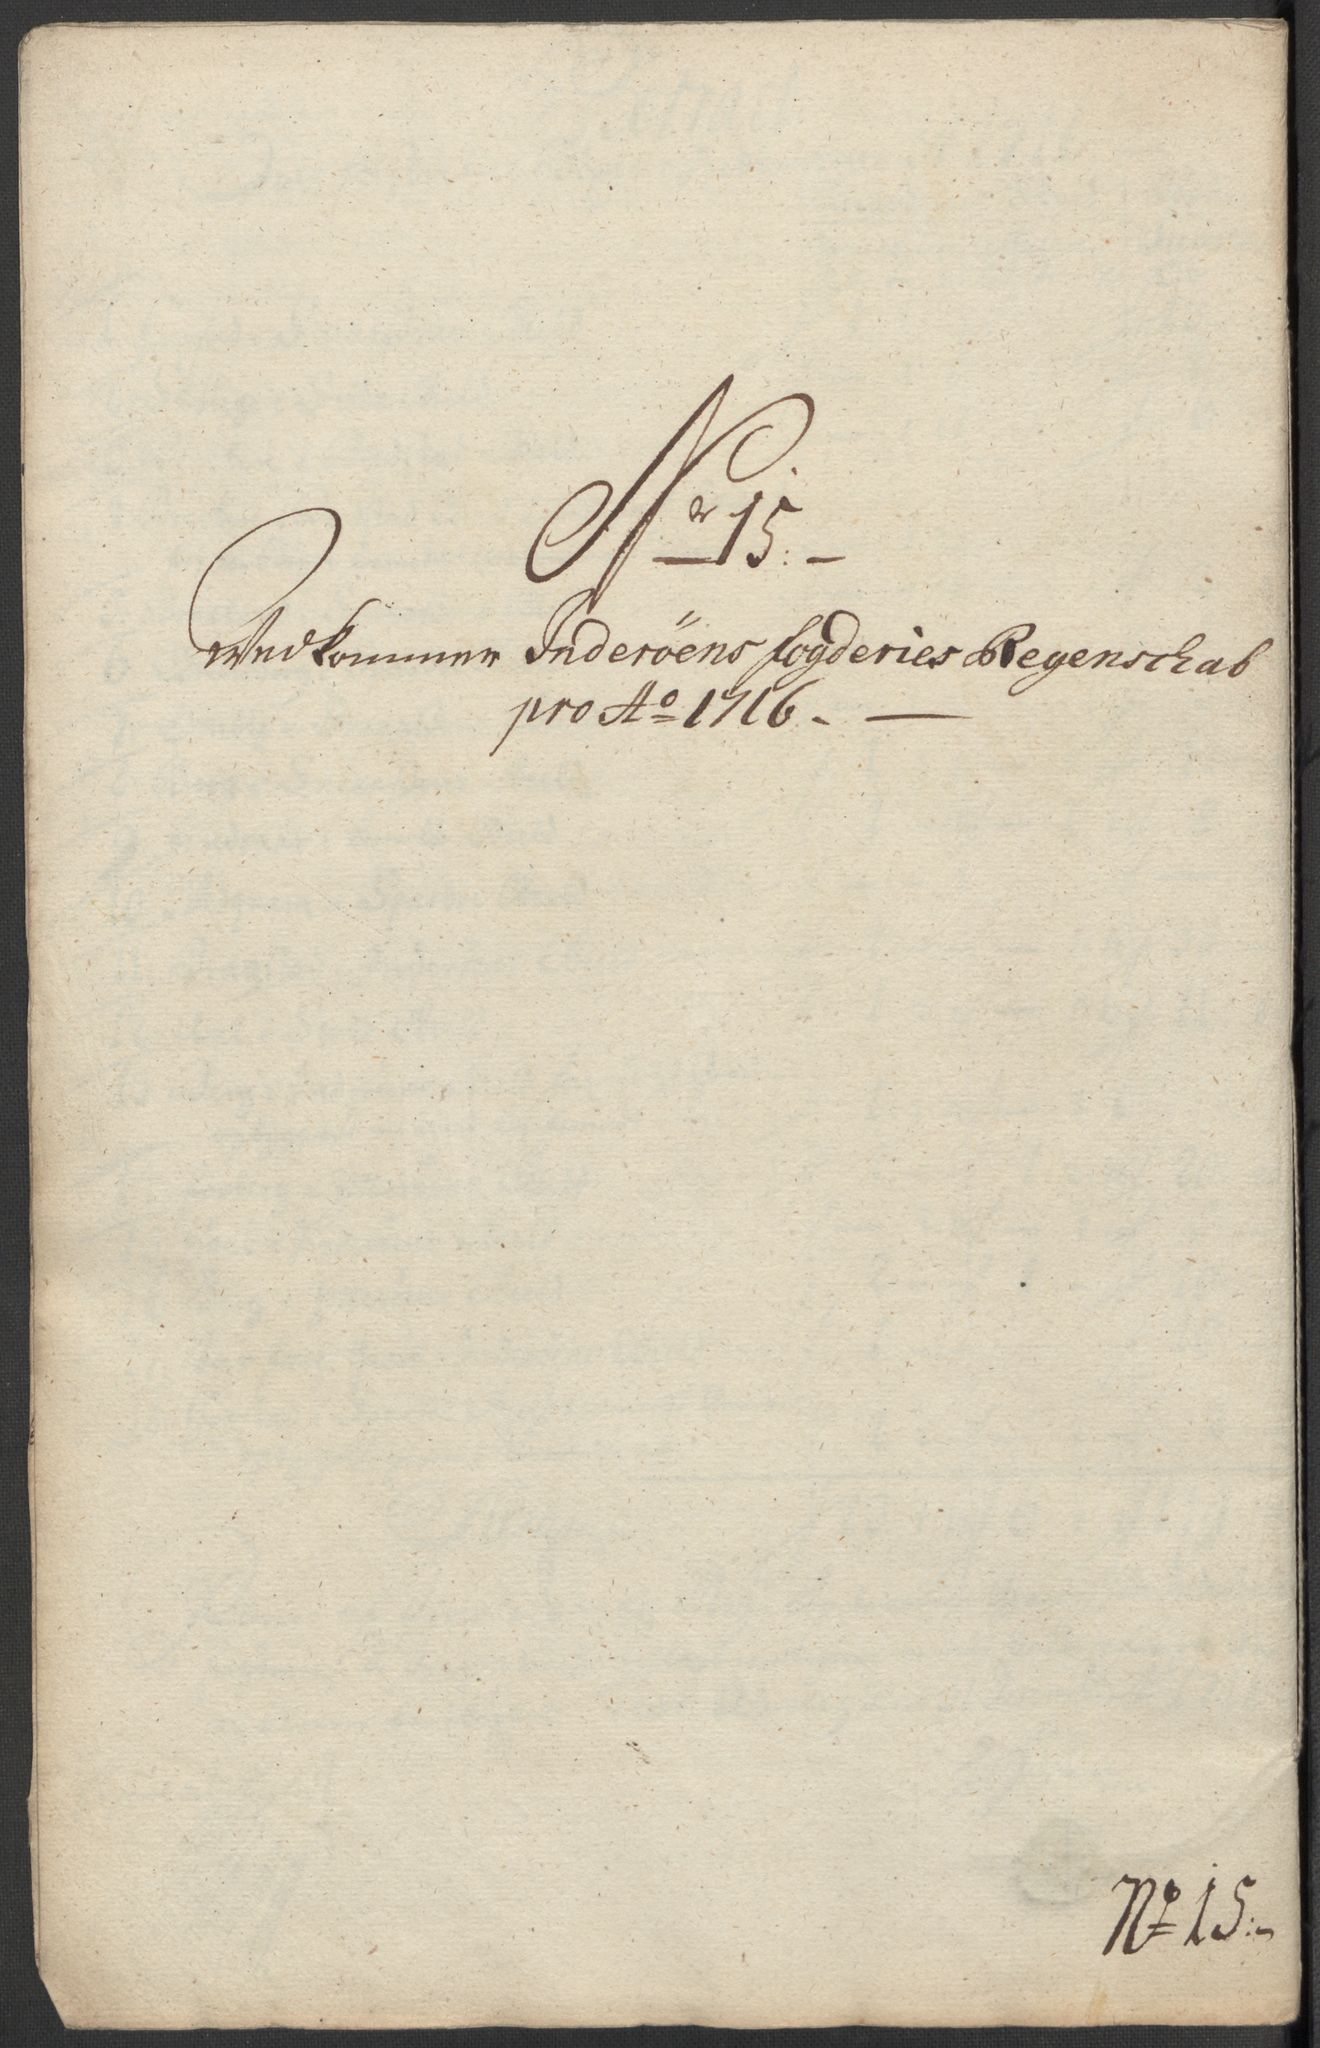 Nr 15.
Vedkommer Inderöens fogderies Regenschab
pro Ao 1716.
No 15.